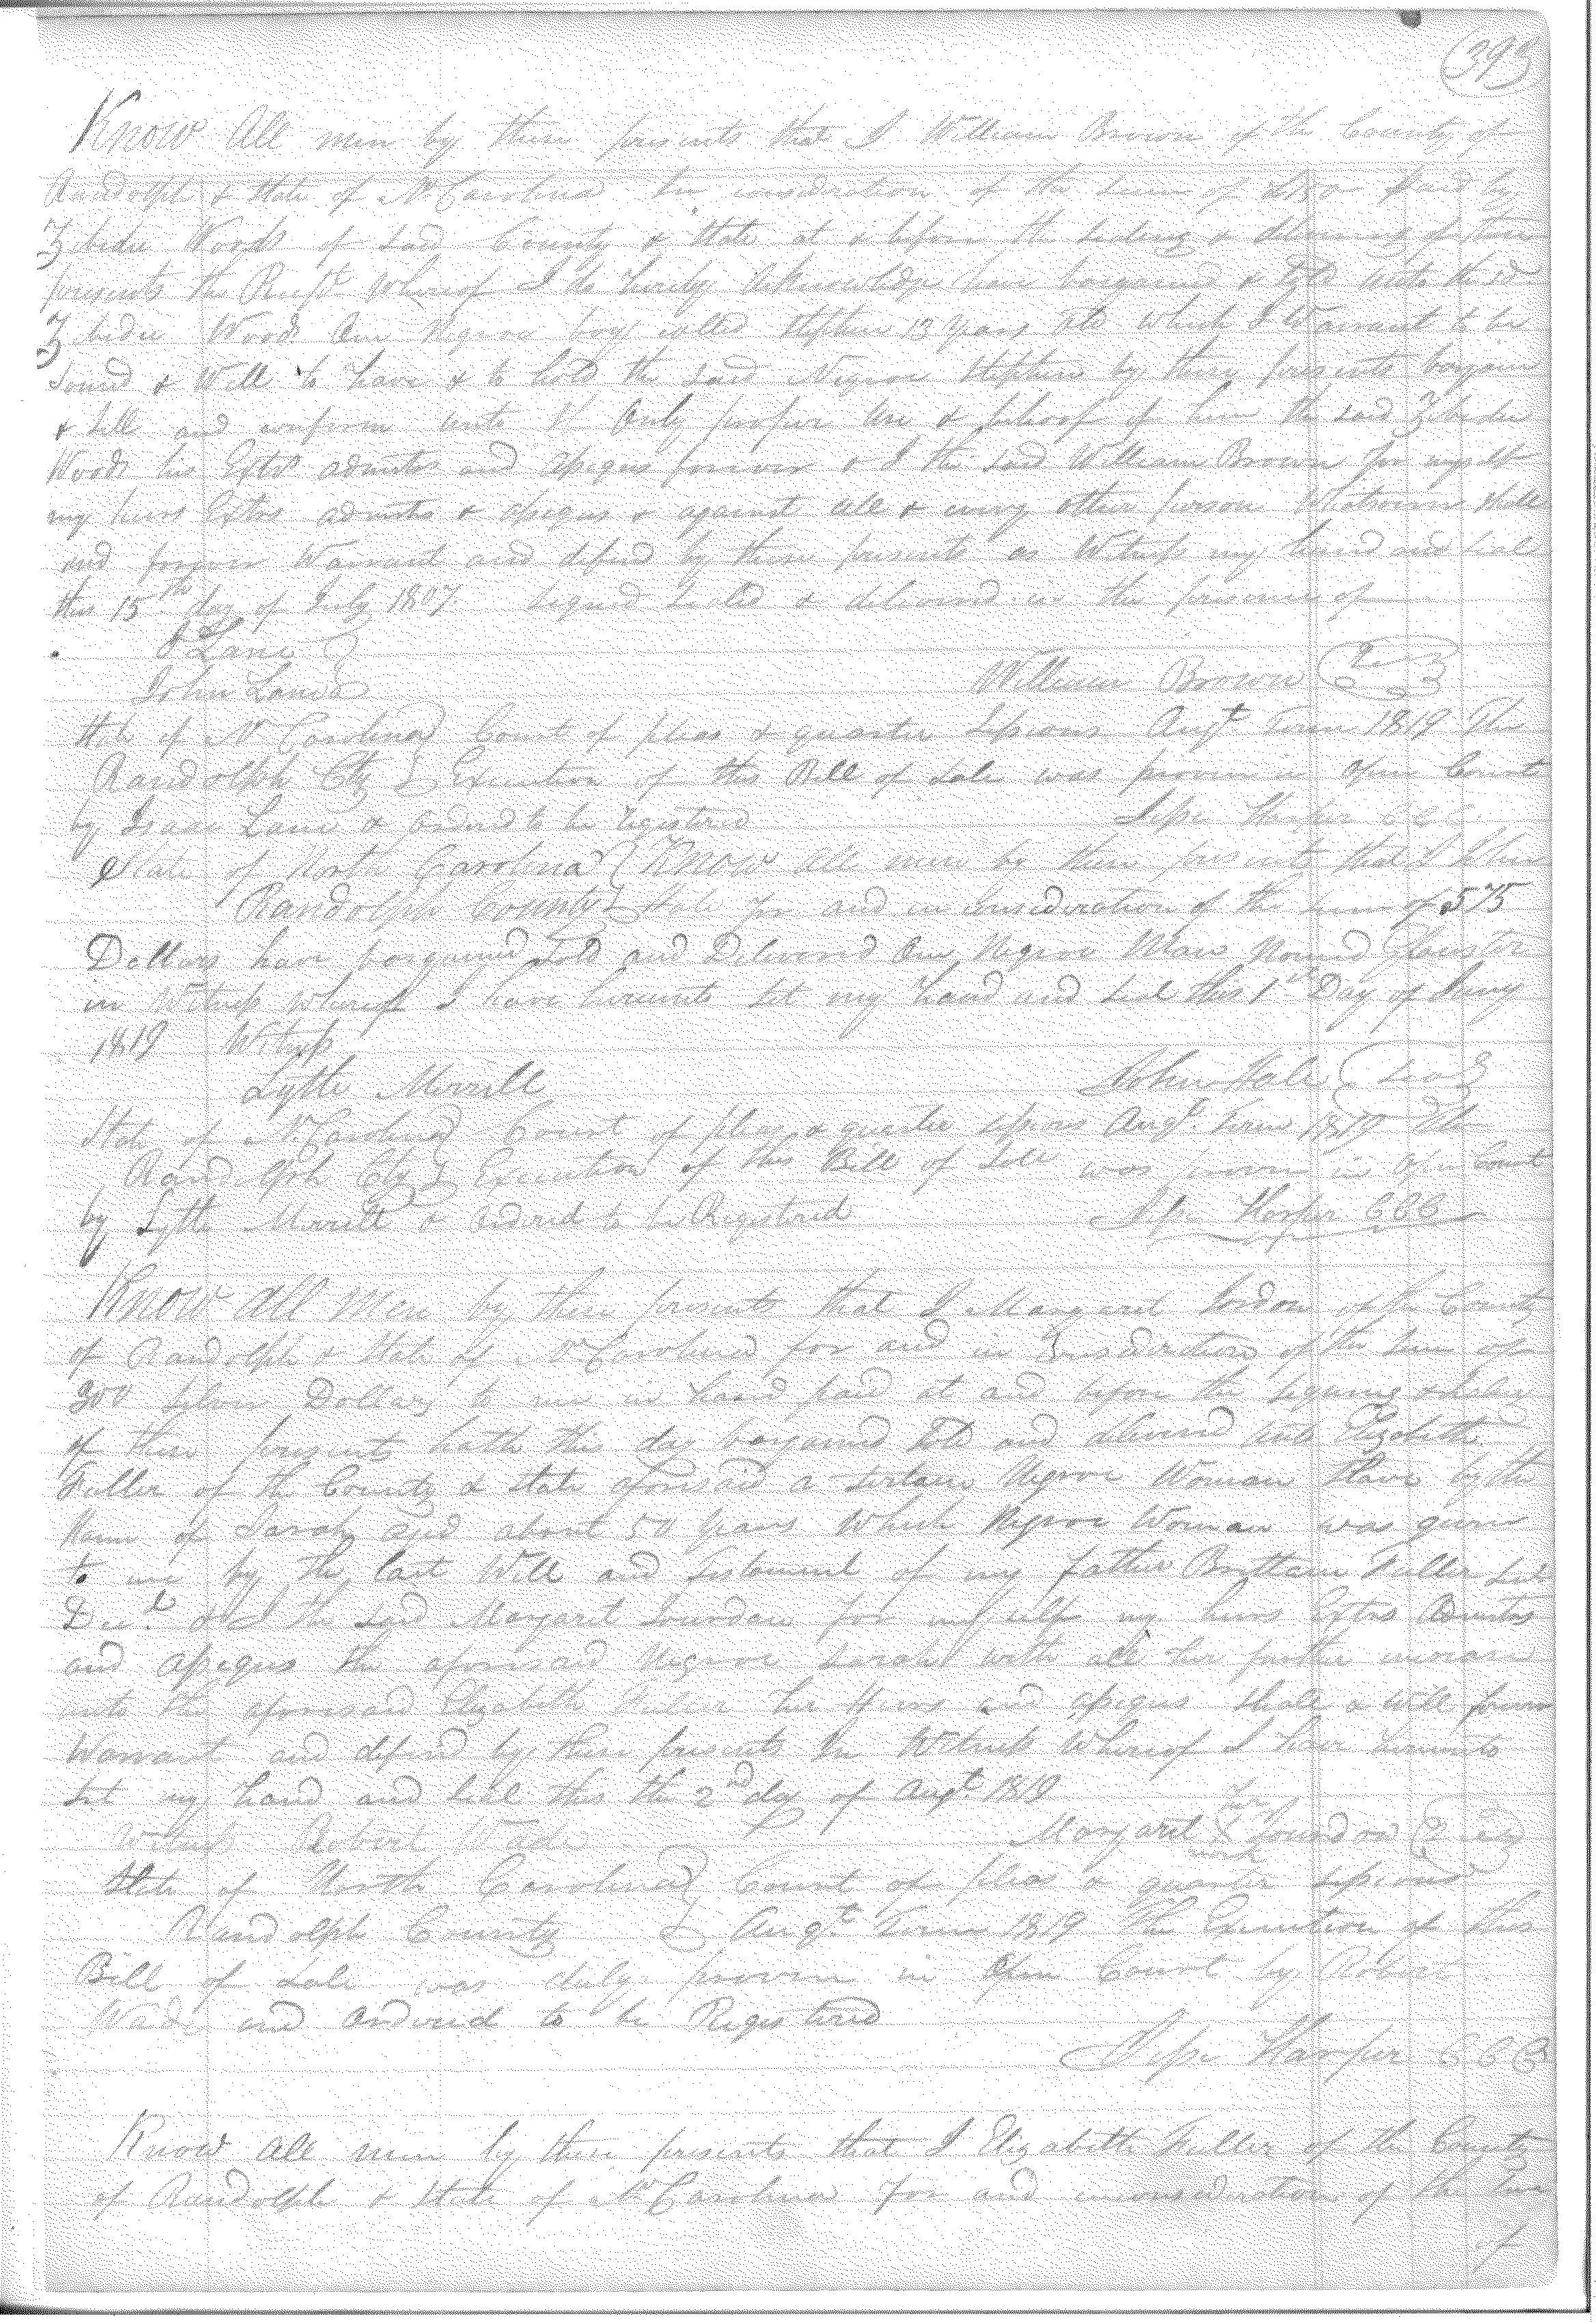 Know All men by these presents that I William Brown of the County of
Randolph & State of N Carolina in consideration of the sum of paid by
Zebedee Woods of said County & State at & before the sealing & delivering of these
presents the Rect whereof I do hereby Acknowledge have bargained & sold unto the sd
Zebedee Wood One Negroe boy called Stephen 13 years old which I Warrant to be
sound & well to have & to hold the said Negroe Stephen by these presents bargain
& sell and confirm unto the only proper use & behoof of him the said Zebedee
Woods his Extrs admtrs and assigns forever & I the said William Brown for myself
my heirs Extrs admtrs & assigns & against all & every other person Whatsoever shall
and forever Warrant and defend by these presents as Witness my hand and seal
this 15th day of July 1807. Signed sealed & delivered in the presence of
Lane
John Lane William Brown
State of N Carolina Court of pleas & quarter Sessions Augt. Term 1819 The
Randolph Cty Execution of this Bill of Sale was proven in Open Court
by Isaac Lane & ordered to be registered Jesse Harper CCC.
State of North Carolina Know All men by these presents that I John
Randolph County Hale for and in consideration of the sum of $575
Dollars have bargained Sold and Delivered One Negroe Man Named
in Witness whereof I have hereunto set my hand and seal this 1st Day of
1819 Witness
Lytle Merrill John Hale Seal
State of N. Carolina Court of pleas & quarter sessions Augt. Term 1819 The
Randolph Cty Execution of this Bill of Sale was proven in Open Court
by Lytle Merrill & ordered to be Registered Jesse Harper CCC
Know All Men by these presents that I Margaret Jordon of the County
of Randolph & State of N Carolina for and in Consideration of the Sum of
300 silver Dollars to me in hand paid at and before the signing & sealing
of these presents hath this day bargained Sold and delivered unto Elizabeth
Fuller of the County & State aforesaid a sertain Negroe Woman Slave by the
Name of Sarah aged about 50 years Which Negroe Woman was given
to me by the last Will and Testament of my father Brittain Fuller
Decd. & I the said Margaret Jourdan for my self my heirs Extrs Admtrs
and assigns the aforesaid Negroe Sarah with all her further increase
unto the aforesaid Elizabeth Fuller her Heirs and assigns shall & will forever
Warrant and defend by these presents In Witness Whereof I have hereunto
set my hand and seal this the 2nd day of Augt. 1819
her
Witness Robert Wade Margaret X Jourdon Seal
mark
State of North Carolina Court of pleas & quarter sessions
Randolph County Augt. Term 1819 The Execution of this
Bill of Sale was duly proven in Open Court by Robert
Wade and Ordered to be Registered
Jesse Harper CCC
Know All men by these presents that I Elizabeth Fuller of the County
of Randolph & State of N Carolina For and in consideration of the Sum
of